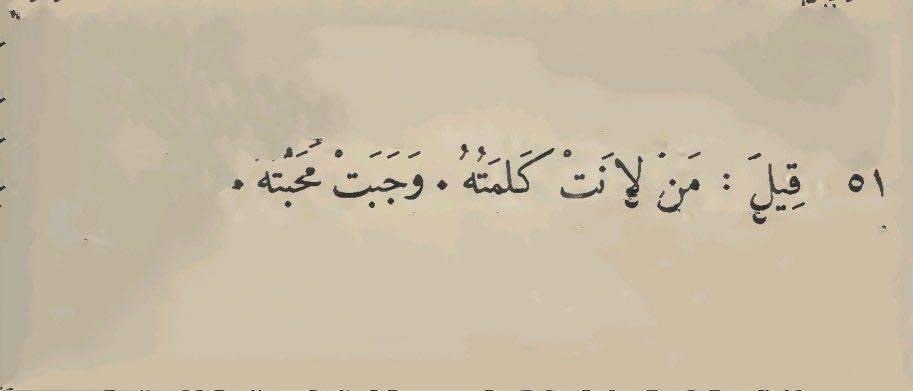 ٥١ قِيلَ : مَنْ لَانَتْ كَلمَتُهُ . وَجَبَتْ مَحَبَّتُهُ .